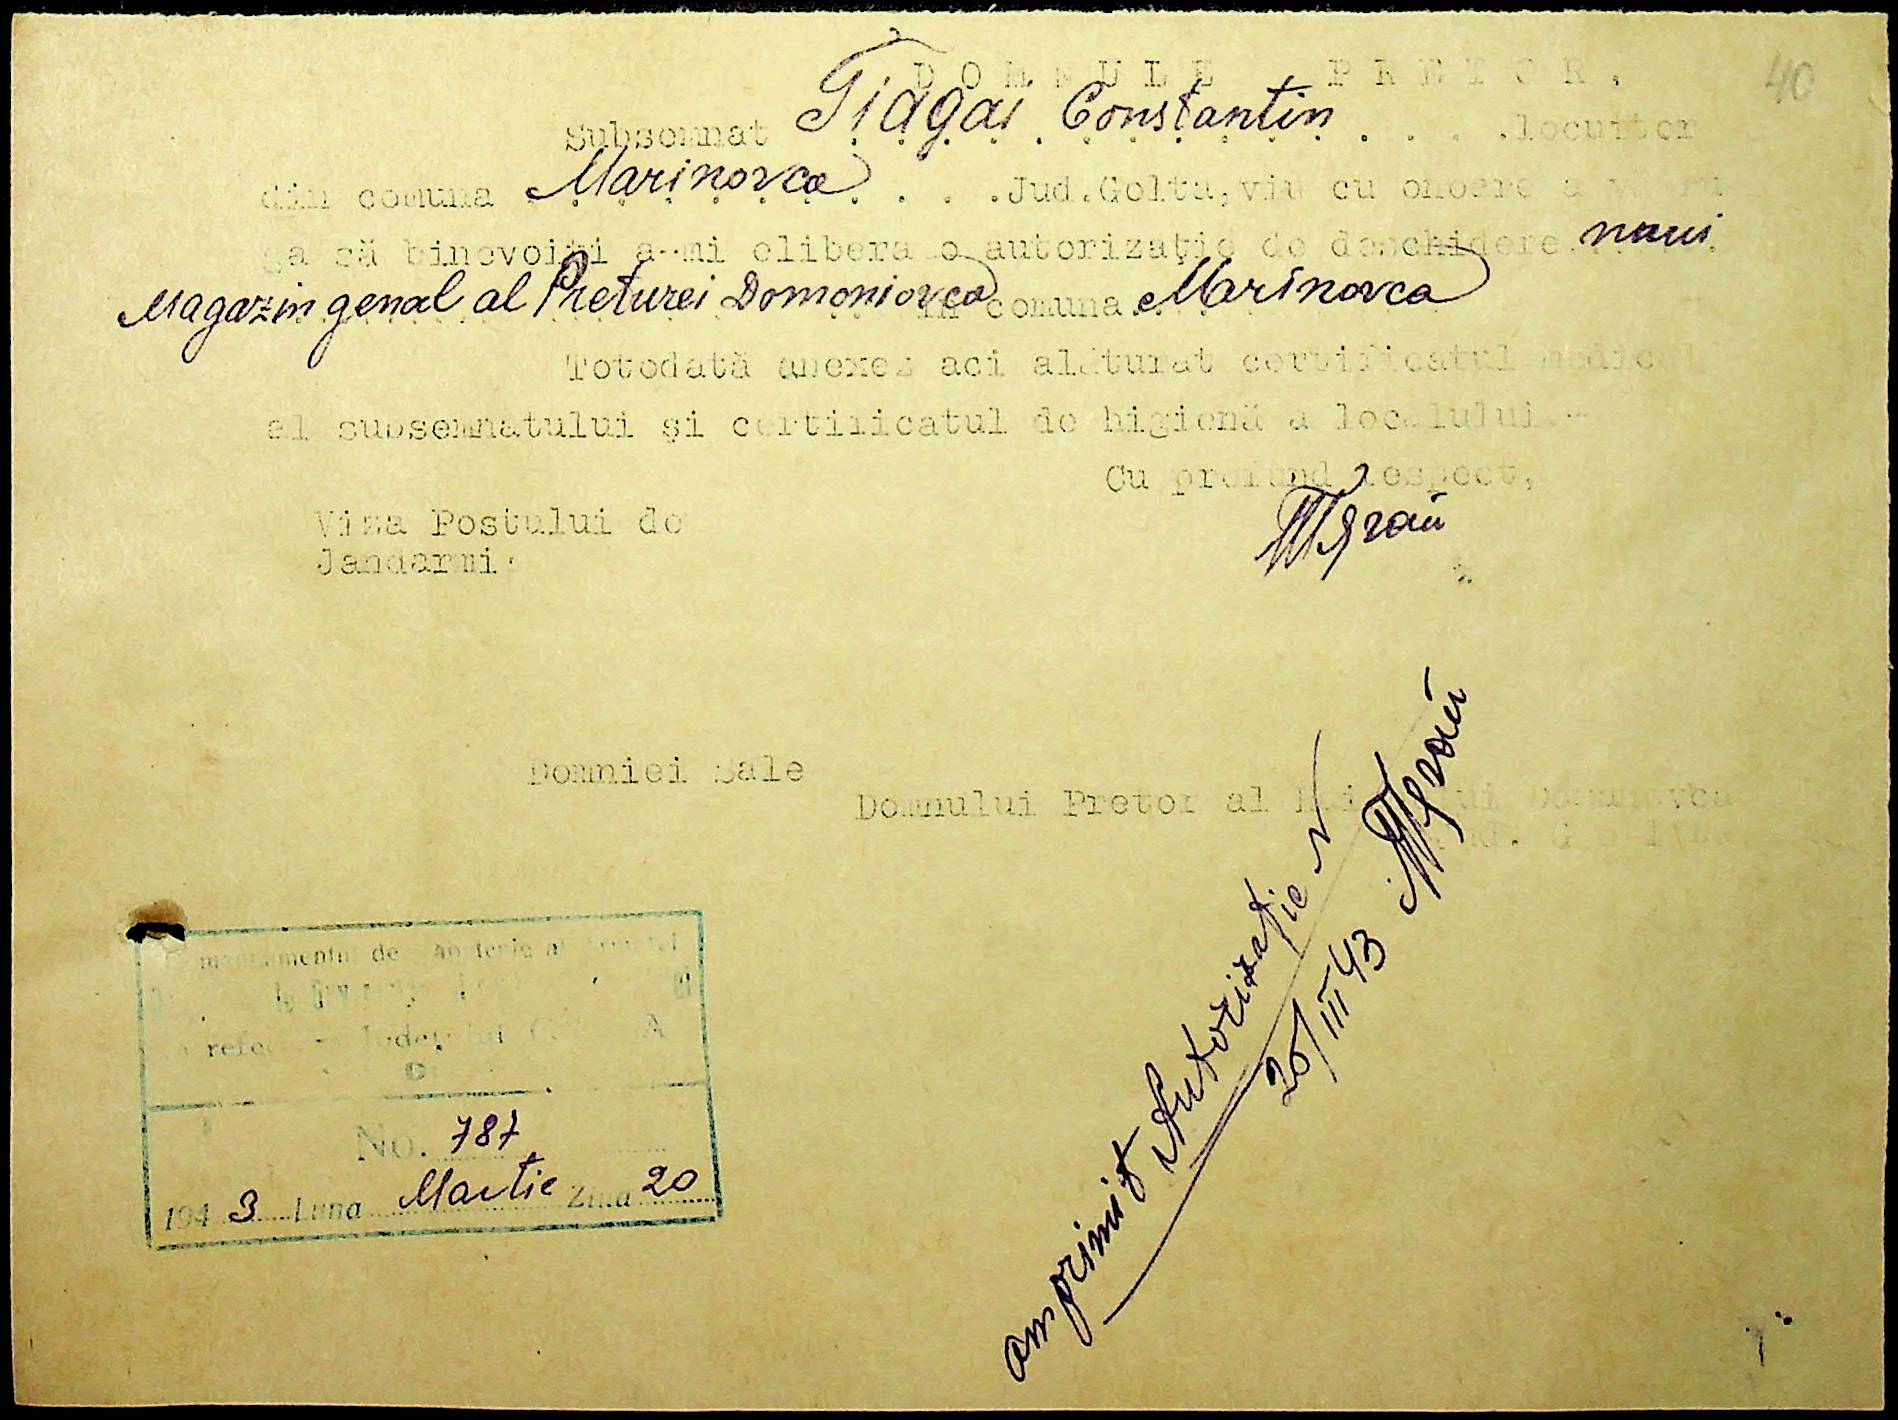 40
DOMNULE PRETOR.
Subsemnat Tiagai Constantin . . . . locuitor
din comuna Marinovca . . . Jud.Golta, viu cu onoare a vă ru
ga să binevoiți a-mi elibera o autorizație de deschidere unui
Magazin genal al Preturei Domoniovca in comuna Marinovca
Totodată anexez aci alăturat certificatul medical
al subsemnatului și certificatul de higienă a localului.-
Cu profund respect,
Viza Postului de
Jandarmi.
Domniei Sale
Domnului Pretor al Domaniovca
Jud. Golta
am primit Autorizație
20/III 43
No. 787
1943 Luna Martie Ziua 20